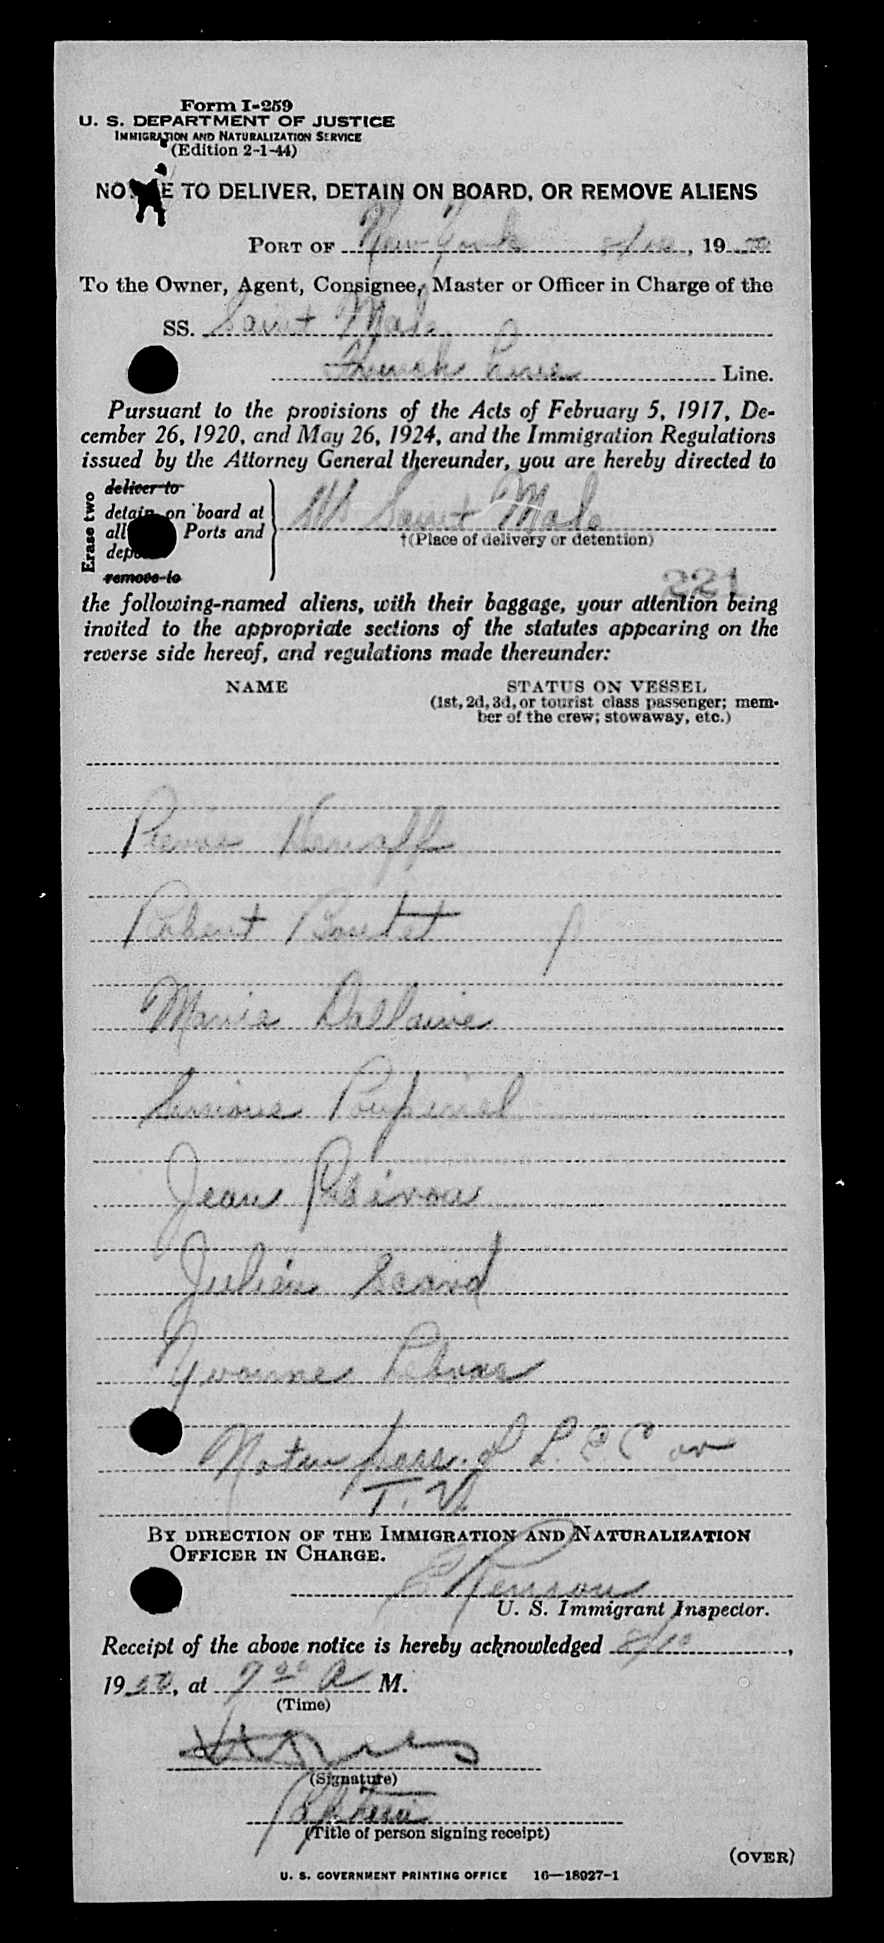 Form I-259
U. S. DEPARTMENT OF JUSTICE
IMMIGRATION AND NATURALIZATION SERVICE
(Edition 2-1-44)
TO DELIVER, DETAIN ON BOARD, OR REMOVE ALIENS
PORT OF New York 8/10, 19 50
To the Owner, Agent, Consignee, Master or Officer in Charge of the
SS. Saint Malo
French Line Line.
Pursuant to the provisions of the Acts of February 5, 1917, De-
cember 26, 1920, and May 26, 1924, and the Immigration Regulations
issued by the Attorney General thereunder, you are hereby directed to
Erase two
deliver to
detain on board at
all Ports and
remove to
SS Saint Malo
†(Place of delivery or detention)
221
the following-named aliens, with their baggage, your attention being
invited to the appropriate sections of the statutes appearing on the
reverse side hereof, and regulations made thereunder:
NAME STATUS ON VESSEL
(1st, 2d, 3d, or tourist class passenger; mem-
ber of the crew; stowaway, etc.)
Pierre
Robert Boutet
Marie Dallaire
Simone
Jean
Julien Scard
Yvonne
pass. of L. P. C or
T. V.
BY DIRECTION OF THE IMMIGRATION AND NATURALIZATION
OFFICER IN CHARGE.
U. S. Immigrant Inspector.
Receipt of the above notice is hereby acknowledged 8/10,
19 50, at 7 00 A M.
(Time)
(Signature)
(Title of person signing receipt)
(OVER)
U. S. GOVERNMENT PRINTING OFFICE 16—18927-1